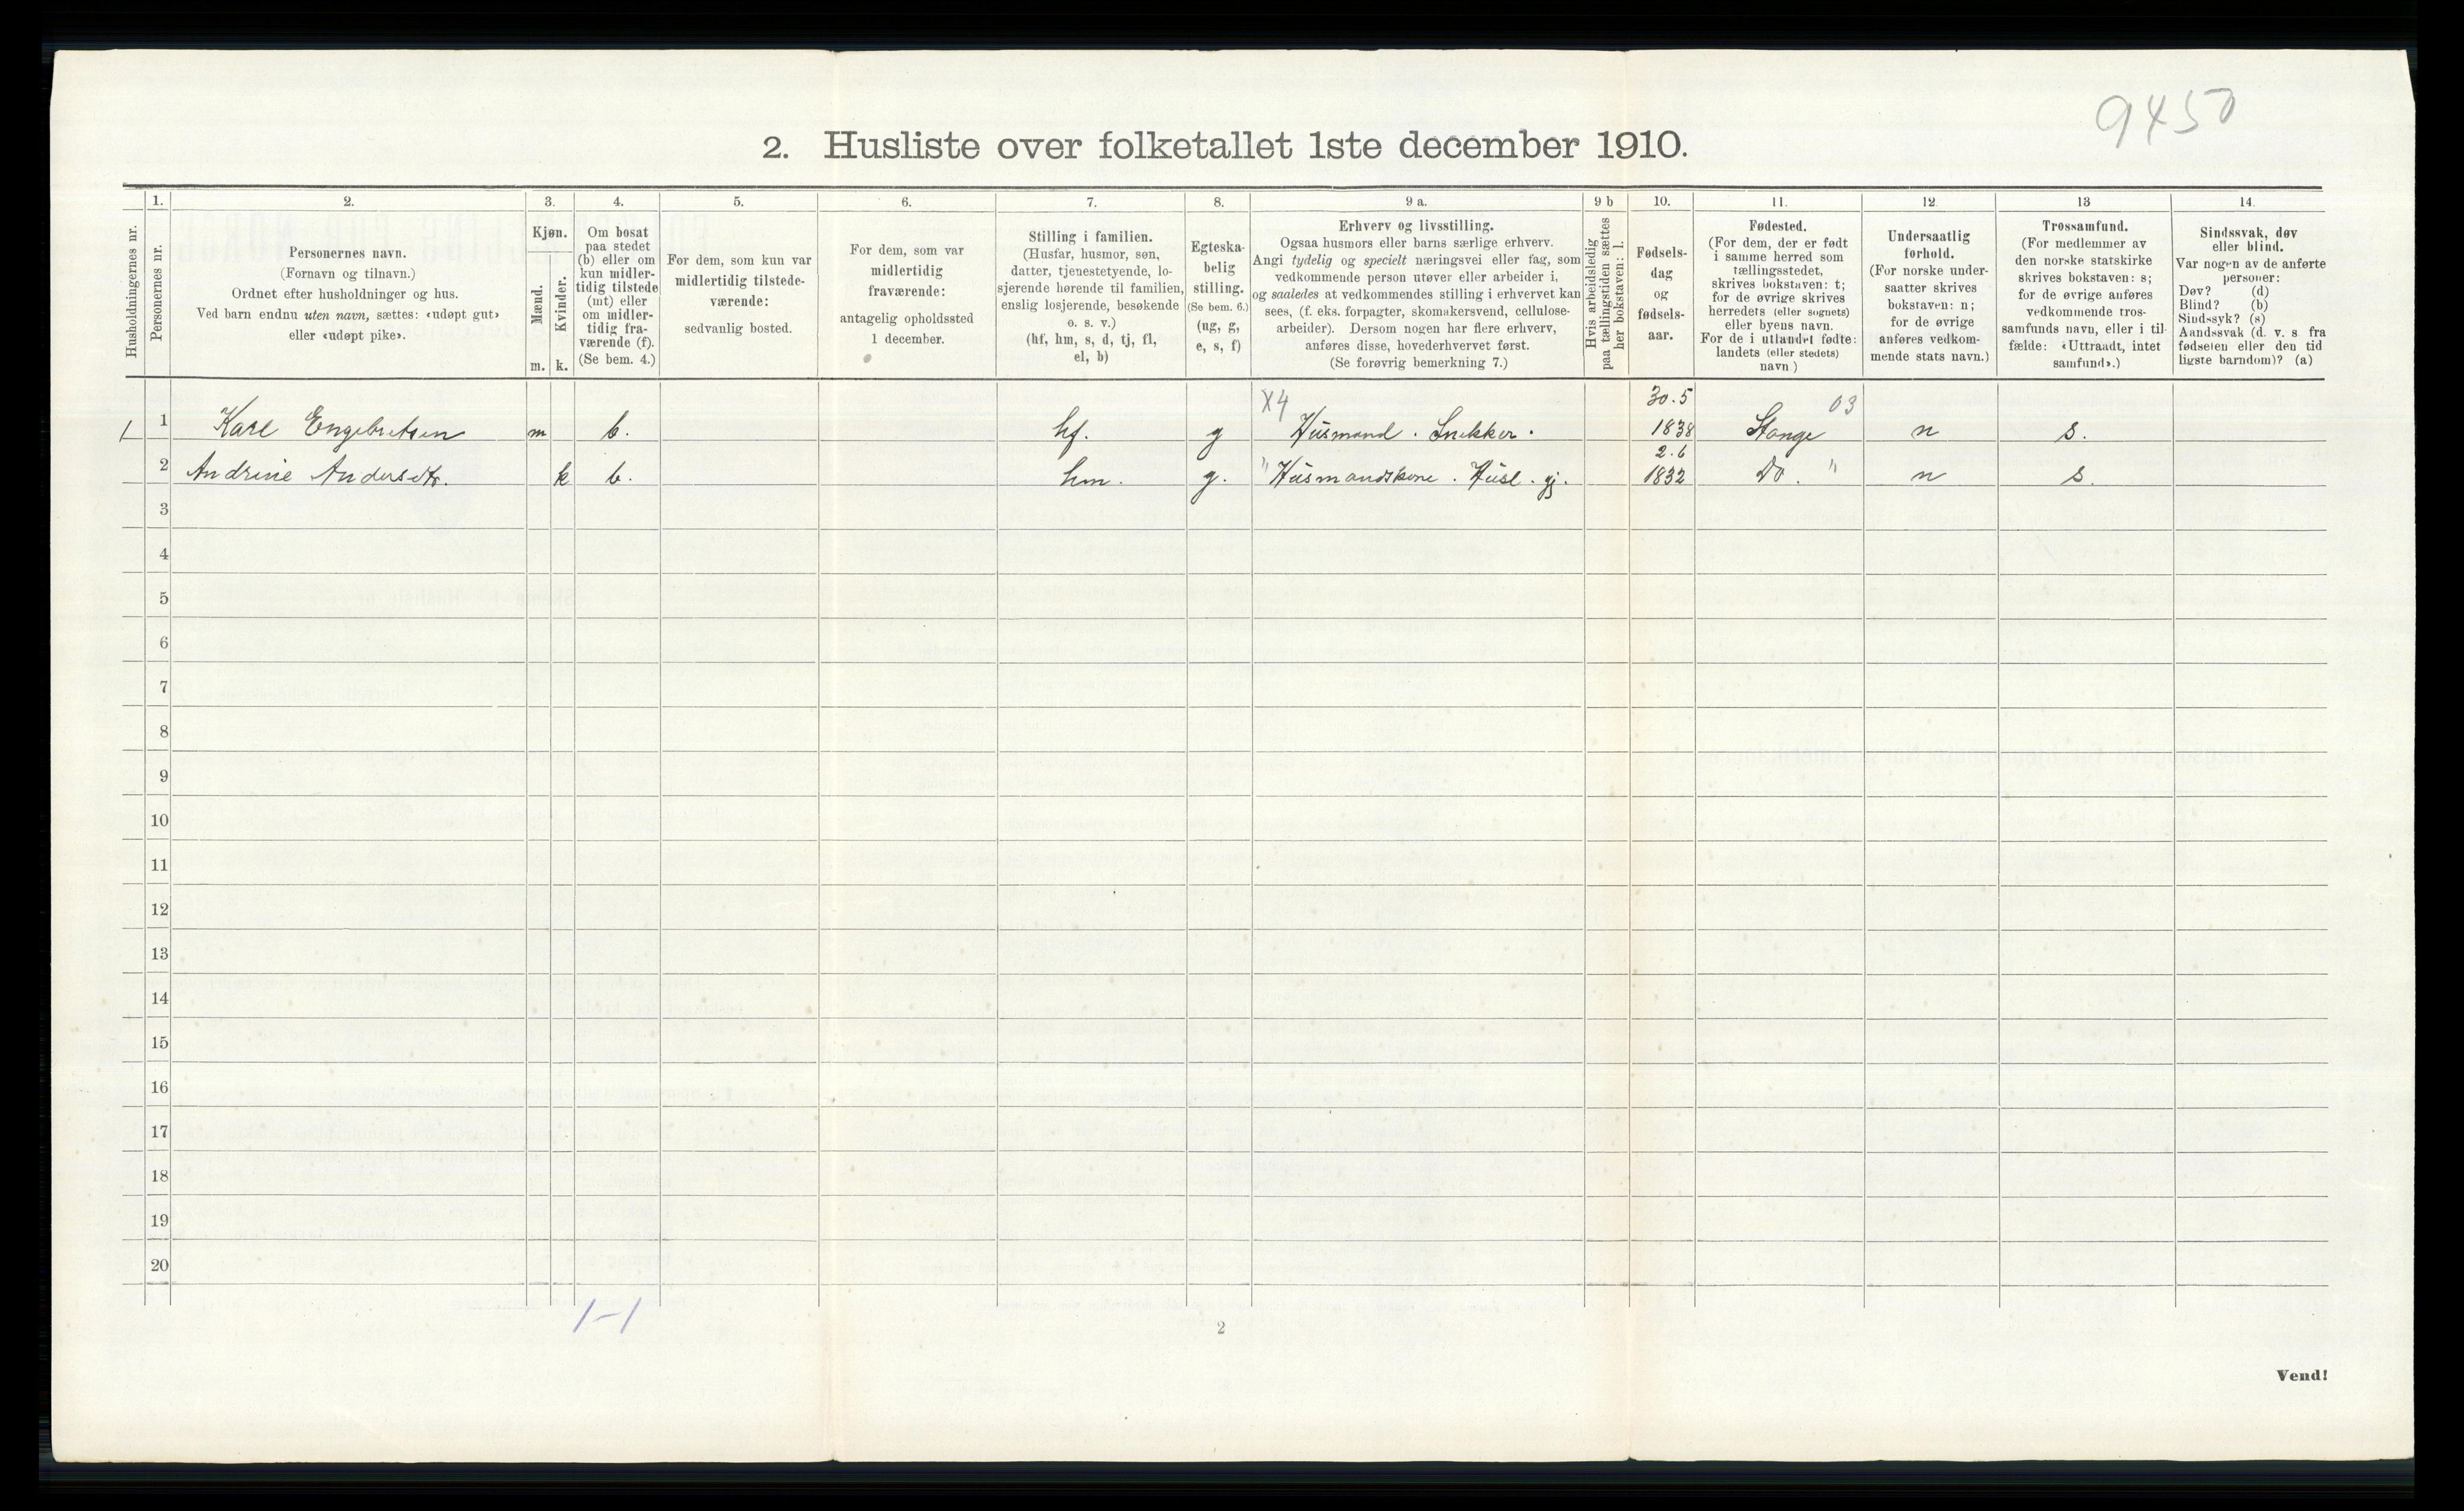 9450
2. Husliste over folketallet 1ste december 1910.
Husholdningernes nr.
1.
Personernes nr.
2.
Personernes navn.
(Fornavn og tilnavn.)
Ordnet efter husholdninger og hus.
Ved barn endnu uten navn, sættes: «udøpt gut»
eller «udøpt pike».
3.
Kjøn.
Mænd.
Kvinder.
m. k.
4.
Om bosat
paa stedet
(b) eller om
kun midler-
tidig tilstede
(mt) eller
om midler-
tidig fra-
værende (f).
(Se bem. 4.)
5.
For dem, som kun var
midlertidig tilstede-
værende:
sedvanlig bosted.
6.
For dem, som var
midlertidig
fraværende:
antagelig opholdssted
1 december.
7.
Stilling i familien.
(Husfar, husmor, søn,
datter, tjenestetyende, lo-
sjerende hørende til familien,
enslig losjerende, besøkende
o. s. v.)
(hf, hm, s, d, tj, fl,
el, b)
8.
Egteska-
belig
stilling.
(Se bem. 6.)
(ug, g,
e, s, f)
9 a.
Erhverv og livsstilling.
Ogsaa husmors eller barns særlige erhverv.
Angi tydelig og specielt næringsvei eller fag, som
vedkommende person utøver eller arbeider i,
og saaledes at vedkommendes stilling i erhvervet kan
sees, (f. eks. forpagter, skomakersvend, cellulose-
arbeider). Dersom nogen har flere erhverv,
anføres disse, hovederhvervet først.
(Se forøvrig bemerkning 7.)
9 b
Hvis arbeidsledig
paa tællingstiden sættes
her bokstaven: l.
10.
Fødsels-
dag
og
fødsels-
aar.
11.
Fødested.
(For dem, der er født
i samme herred som
tællingsstedet,
skrives bokstaven: t;
for de øvrige skrives
herredets (eller sognets)
eller byens navn.
For de i utlandet fødte:
landets (eller stedets)
navn )
12.
Undersaatlig
forhold.
(For norske under-
saatter skrives
bokstaven: n;
for de øvrige
anføres vedkom-
mende stats navn.)
13
Trossamfund.
(For medlemmer av
den norske statskirke
skrives bokstaven: s;
for de øvrige anføres
vedkommende tros-
samfunds navn, eller i til-
fælde: «Uttraadt, intet
samfund».)
14.
Sindssvak, døv
eller blind.
Var nogen av de anførte
personer:
Døv? (d)
Blind? (b)
Sindssyk? (s)
Aandssvak (d. v. s fra
fødselen eller den tid
ligste barndom)? (a)
X4 30.5 03
1 1 Karl Engebretsen m b. hf. g Husmand. Snekker. 1838 Stange n s.
2.6
2 Andrine Andersdtr. k b. hm. g. " Husmandskone. Husl. gj. 1832 Do. " n s.
3
4
5
6
7
8
9
10
11
12
13
14
15
16
17
18
19
20
1-1
2
Vend!